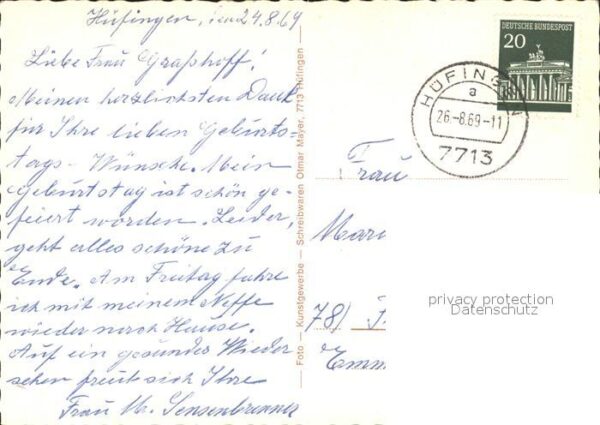 Hüfingen, den 24.8.69
Liebe Frau Graßhoff!
Meinen herzlichsten Dank
für Ihre lieben Geburts-
tags-Wünsche. Mein
Geburtstag ist schön ge-
feiert worden. Leider,
geht alles schöne zu
Ende. Am Freitag fahre
ich mit meinem Neffe
wieder nach Hause.
Auf ein gesundes Wieder
sehen freut sich Ihre
Frau M. Sensenbrenner
Foto – Kunstgewerbe – Schreibwaren Otmar Mayer, 7713 Hüfingen
DEUTSCHE BUNDESPOST
20
HÜFINGEN
a
26.-8.69-11
7713
Frau
Mari
781
Emm
privacy protection
Datenschutz